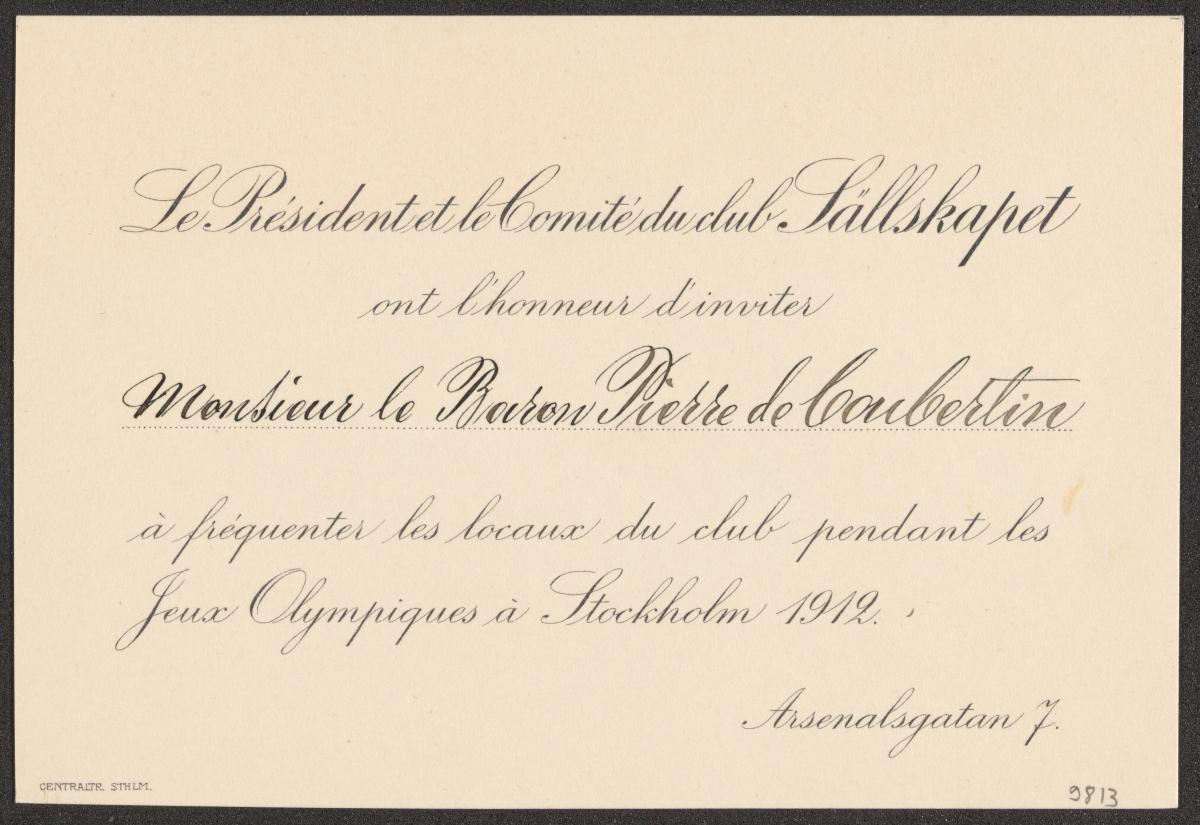 Le Président et le Comité du club Sällskapet
ont l'honneur d'inviter
Monsieur le Baron Pierre de Coubertin
à fréquenter les locaux du club pendant les
Jeux Olympiques à Stockholm 1912.
Arsenalsgatan 7.
CENTRALTR. STHLM.
9813